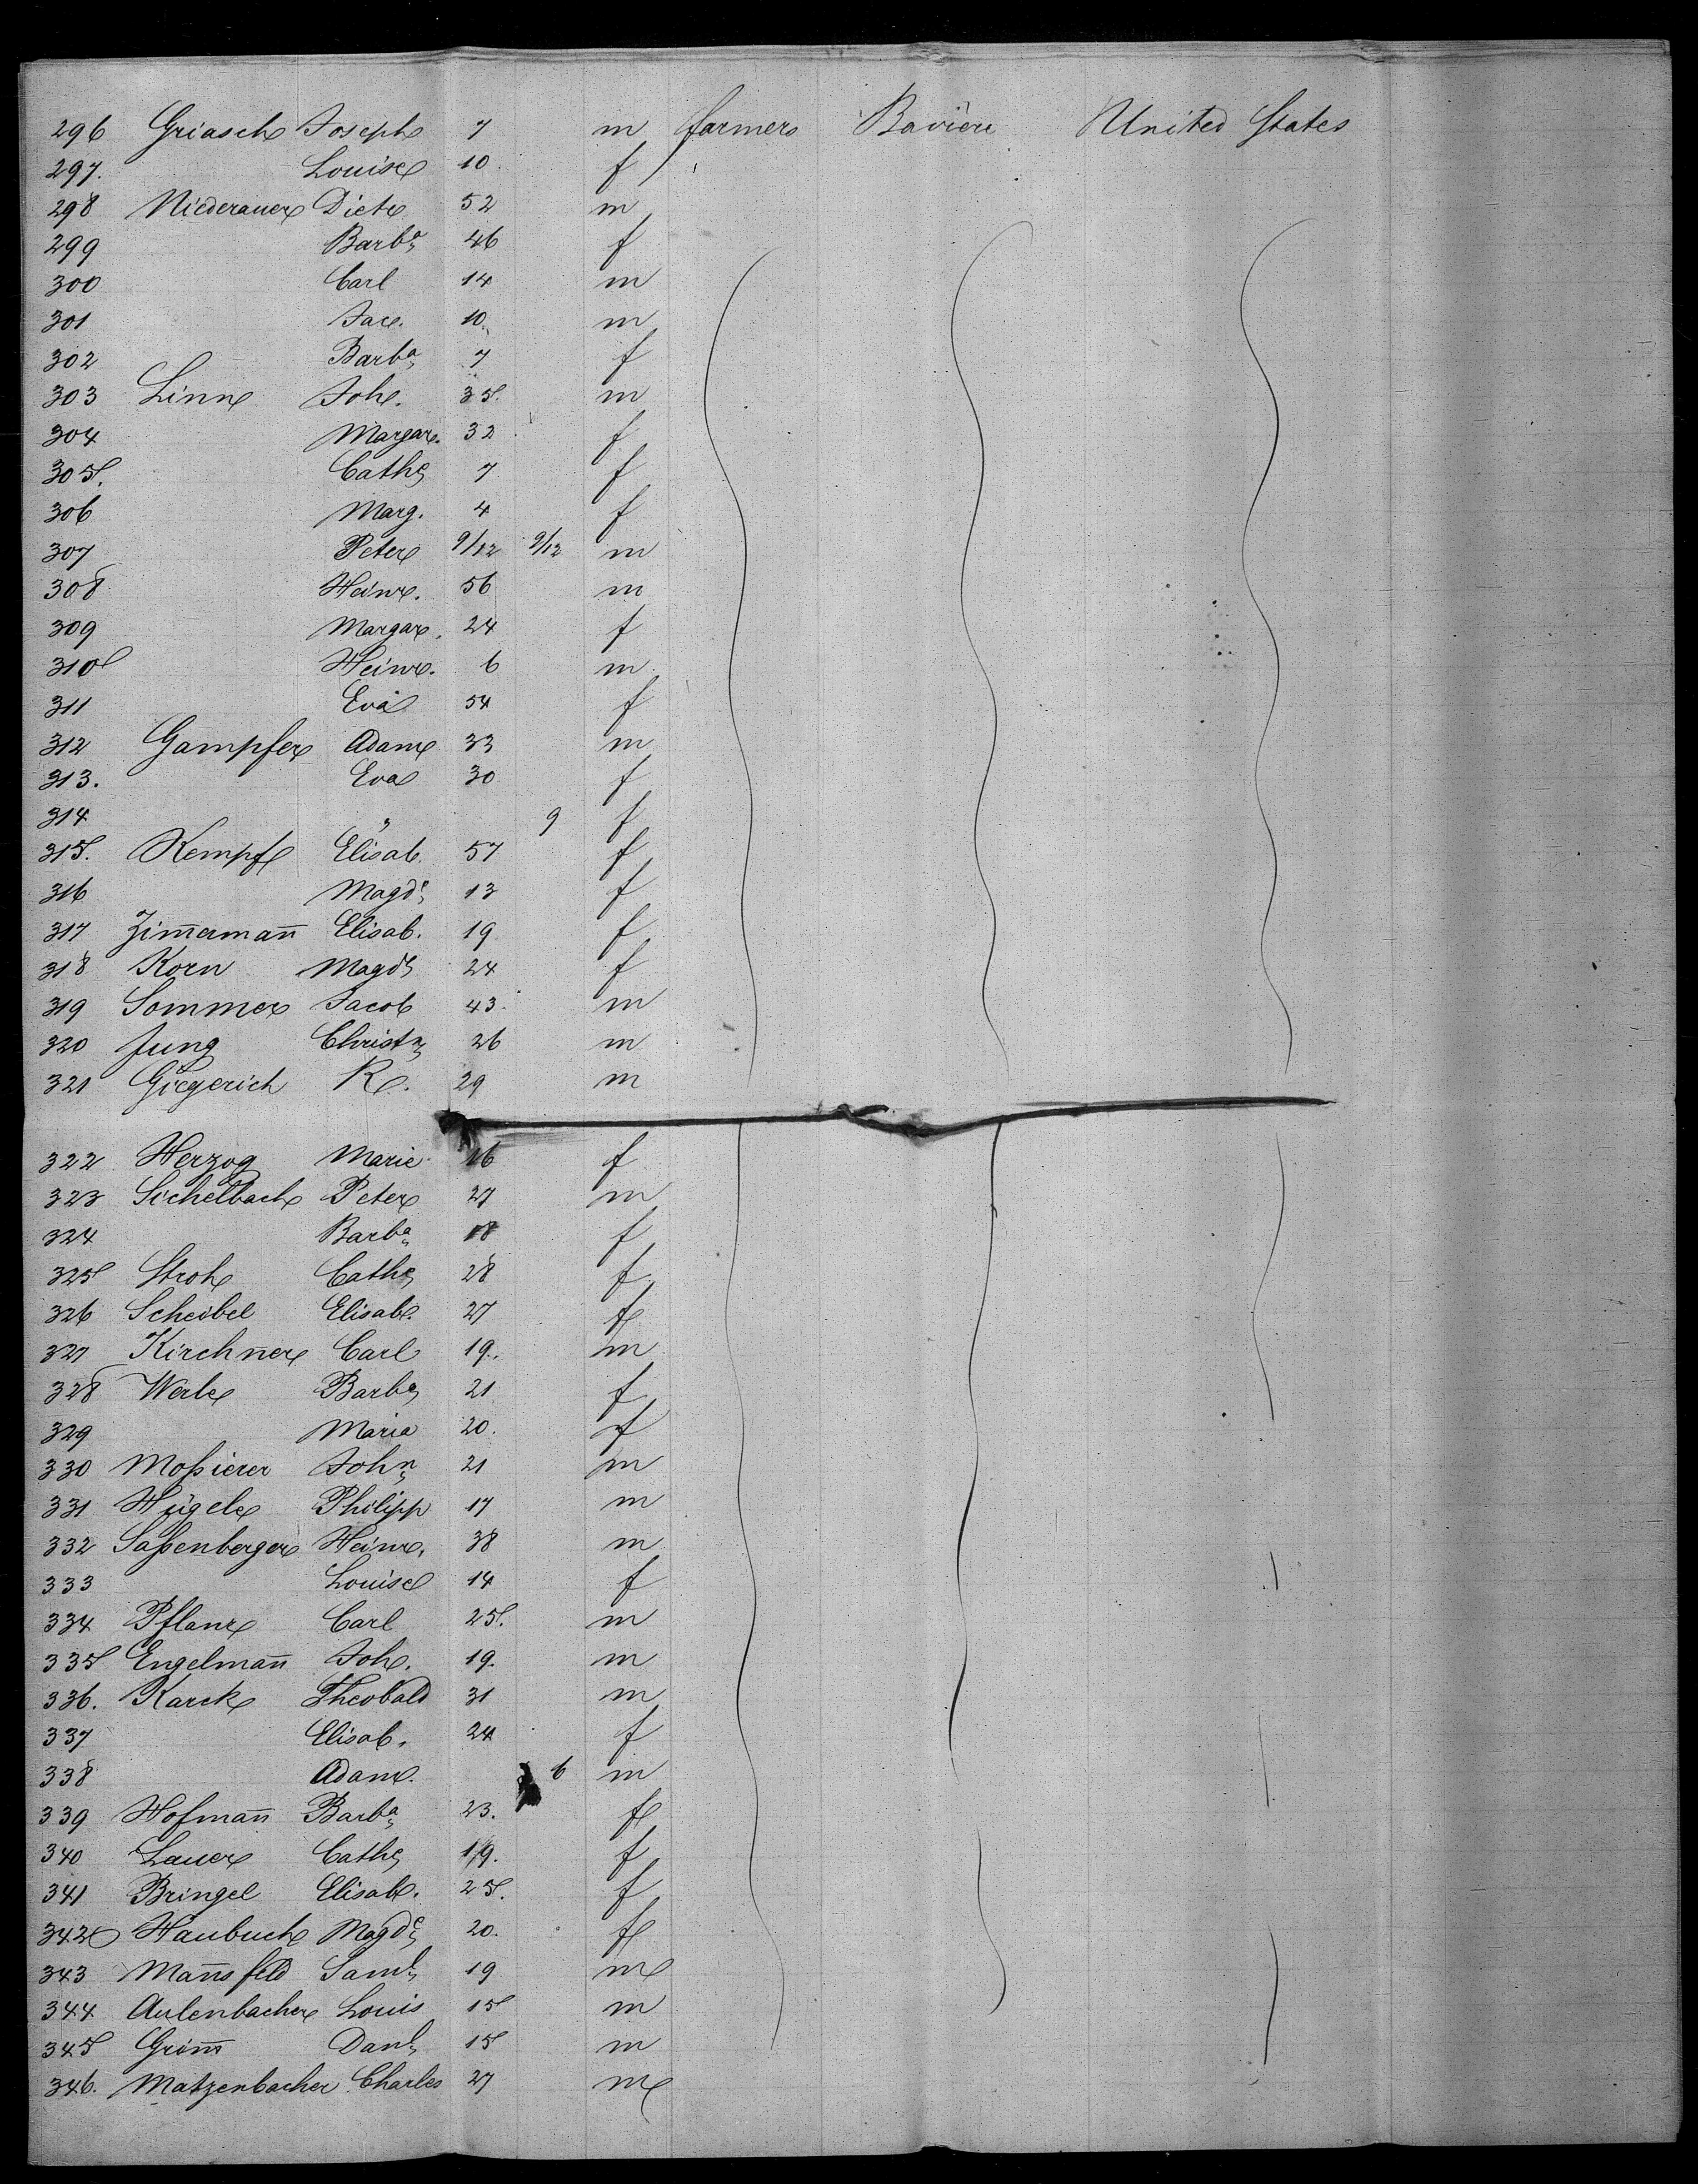 296 Griasch Joseph 7 m farmers Bavière United States
297. Louise 10 f
298 Niederauer Dietr 52 m
299 Barba 46 f
300 Carl 14 m
301 Jac. 10. m
302 Barba 7 f
303 Linn Joh. 35. m
304 Margar. 32 f
305. Cathe 7 f
306 Marg. 4 f
307 Peter 9/12 9/12 m
308 Heinr. 56 m
309 Margar. 24 f
310 Heinr. 6 m
311 Eva 54 f
312 Gampfer Adam 33 m
313. Eva 30 f
314 " 9 f
315. Kempf Elisab. 57 f
316 Magde 13 f
317 Zim̄erman̄ Elisab. 19 f
318 Korn Magde 24 f
319 Sommer Jacob 43. m
320 Jung Christn 26 m
321 Giegerich R. 29 m
322 Herzog Marie 26 f
323 Sichelbach Peter 27 m
324 Barba 18 f
325 Stroh Cathe 28 f
326 Scheibel Elisab. 27 f
327 Kirchner Carl 19. m
328 Werle Barba 21 f
329 Maria 20. f
330 Moßierer John 21 m
331 Hügel Philipp 17 m
332 Saßenberger Heinr. 38 m
333 Louise 14 f
334 Pflanz Carl 25. m
335 Engelman̄ Joh. 19. m
336. Karck Theobald 31 m
337 Elisab. 24 f
338 Adam. 6 m
339 Hofman̄ Barba 23. f
340 Lauer Cathe 19. f
341 Bringel Elisab. 25. f
342 Haubuch Magde 20. f
343 Man̄sfeld Saml 19 m
344 Aulenbacher Louis 15 m
345 Grim̄ Danl 15 m
346. Matzenbacher Charles 27 m